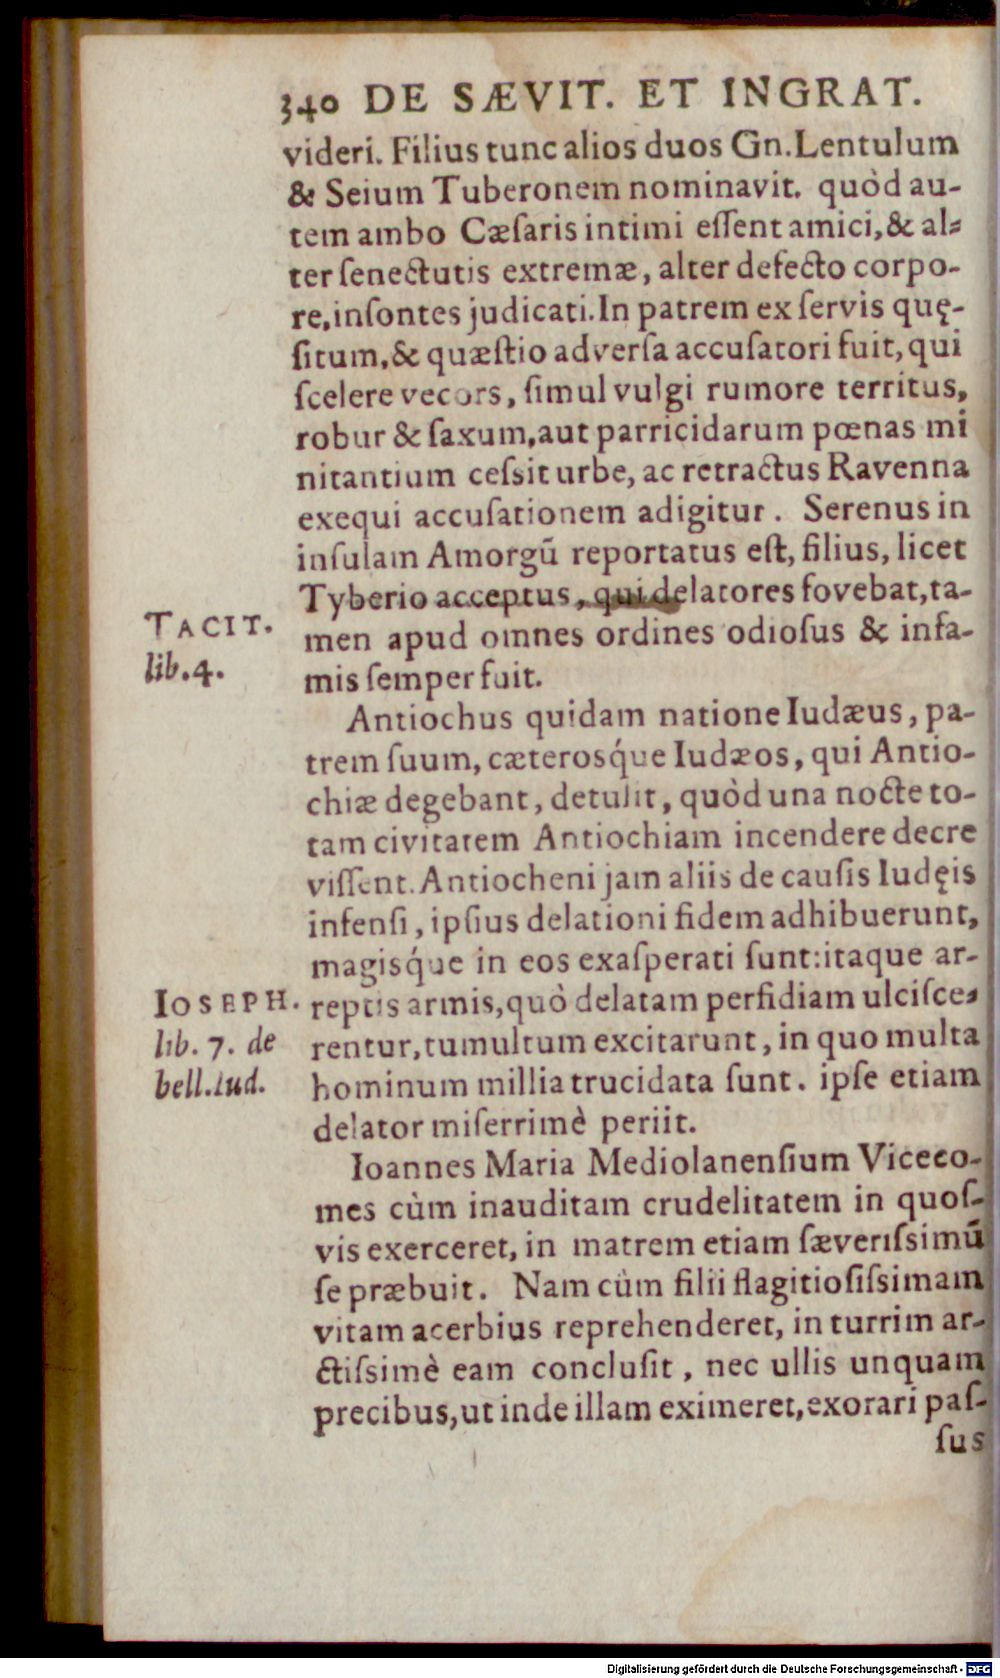 340 DE SÆVIT. ET INGRAT.
videri. Filius tunc alios duos Gn. Lentulum
& Seium Tuberonem nominavit. quòd au-
tem ambo Cæſaris intimi eſſent amici, & al-
ter ſenectutis extremæ, alter defecto corpo-
re, inſontes judicati. In patrem ex ſervis quę-
ſitum, & quæſtio adverſa accuſatori fuit, qui
ſcelere vecors, ſimul vulgi rumore territus,
robur & ſaxum, aut parricidarum pœnas mi
nitantium ceſsit urbe, ac retractus Ravenna
exequi accuſationem adigitur. Serenus in
inſulam Amorgū reportatus eſt, filius, licet
Tyberio acceptus, qui delatores fovebat, ta-
TACIT.
lib. 4.
men apud omnes ordines odioſus & infa-
mis ſemper fuit.
Antiochus quidam natione Iudæus, pa-
trem ſuum, cæterosq́ue Iudæos, qui Antio-
chiæ degebant, detulit, quòd una nocte to-
tam civitatem Antiochiam incendere decre
viſſent. Antiocheni jam aliis de cauſis Iudęis
infenſi, ipſius delationi fidem adhibuerunt,
magisq́ue in eos exaſperati ſunt: itaque ar-
IOSEPH.
lib. 7. de
bell. Iud.
reptis armis, quò delatam perfidiam ulciſce-
rentur, tumultum excitarunt, in quo multa
hominum millia trucidata ſunt. ipſe etiam
delator miſerrimè periit.
Ioannes Maria Mediolanenſium Viceco-
mes cùm inauditam crudelitatem in quoſ-
vis exerceret, in matrem etiam ſæveriſsimū
ſe præbuit. Nam cùm filii flagitioſiſsimam
vitam acerbius reprehenderet, in turrim ar-
ctiſsimè eam concluſit, nec ullis unquam
precibus, ut inde illam eximeret, exorari paſ-
ſus
Digitalisierung gefördert durch die Deutsche Forschungsgemeinschaft - DFG